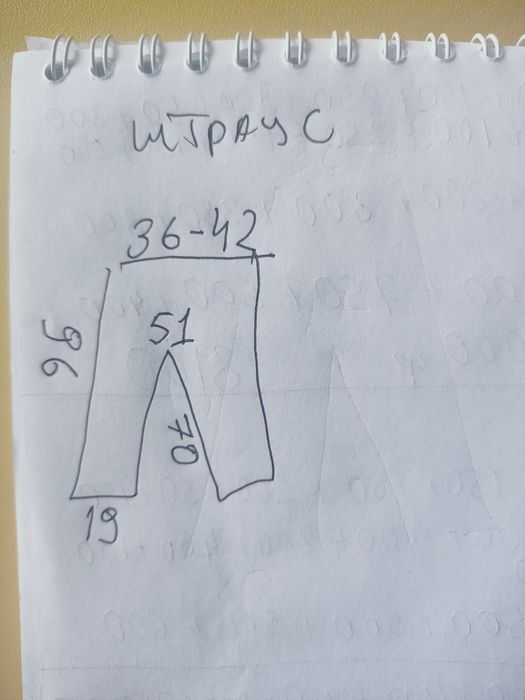 ШТРАУС
36-42
51
96
70
19